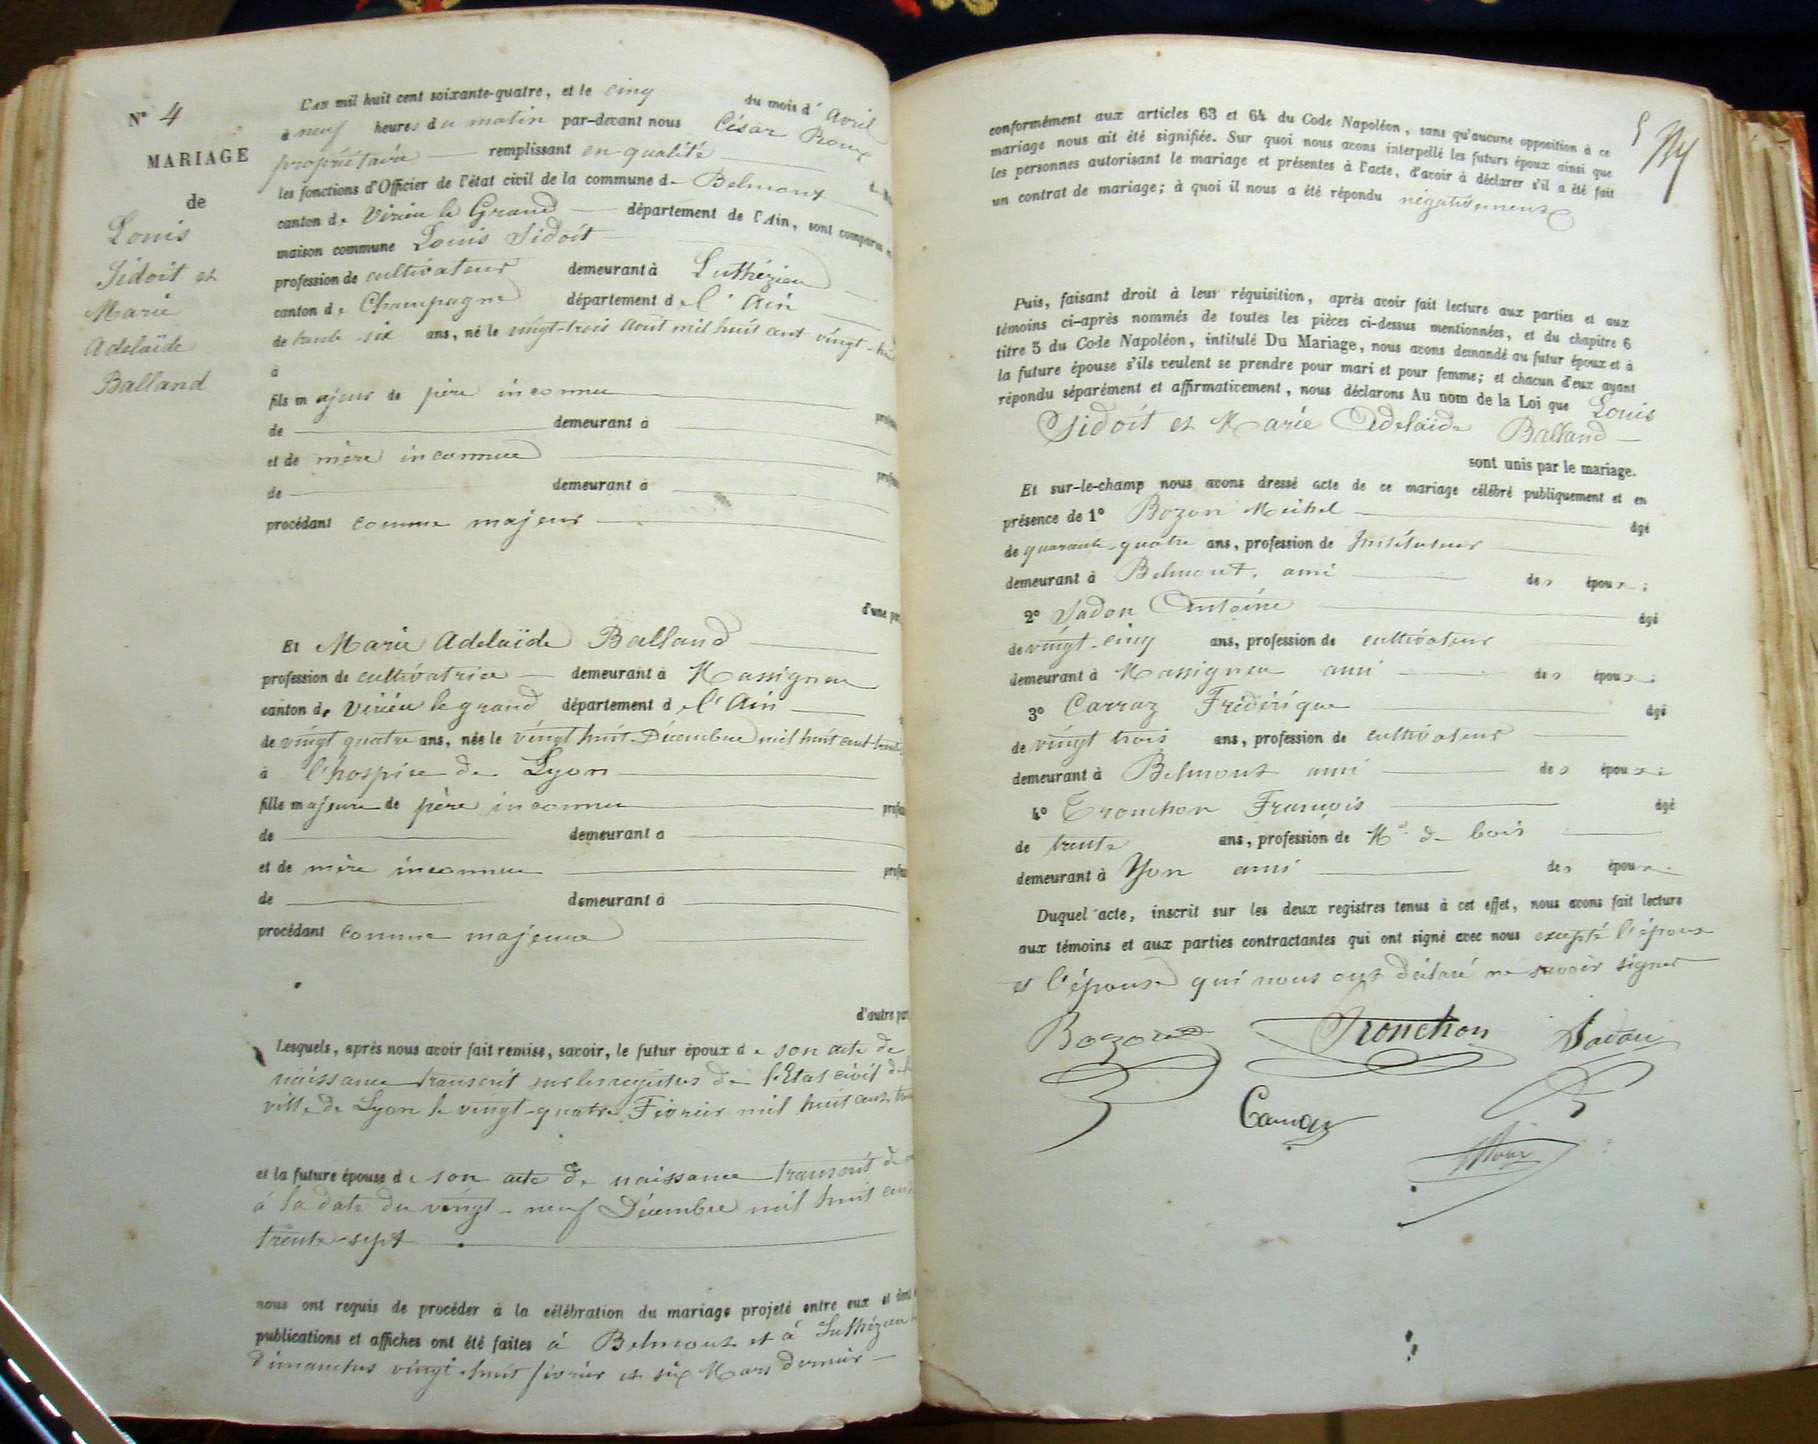 N° 4
MARIAGE
de
Louis
Sidoit et
Marie
Adelaïde
Balland
L'an mil huit cent soixante-quatre, et le cinq du mois d'Avril
à neuf heures du matin par-devant nous César Roux
propriétaire remplissant en qualité
les fonctions d'Officier de l'état civil de la commune de Belmont
canton de Virieu le Grand département de l'Ain, sont comparus
maison commune Louis Sidoit
profession de cultivateur demeurant à Luthézieu
canton de Champagne département de l'Ain
de trente-six ans, né le vingt-trois Août mil huit cent vingt-
à
fils majeur de père inconnu
de demeurant à
et de mère inconnue
de demeurant à
procédant comme majeur
d'une
Et Marie Adelaïde Balland
profession de cultivatrice demeurant à Massigneu
canton de Virieu le grand département de l'Ain
de vingt quatre ans, née le vingt huit Décembre mil huit cent
à l'hospice de Lyon
fille majeure de père inconnu
de demeurant à
et de mère inconnue
de demeurant à
procédant comme majeure
d'autre
Lesquels, après nous avoir fait remise, savoir, le futur époux de son acte de
naissance transcrit sur les registres de l'Etat civil de
ville de Lyon le vingt-quatre Février mil huit cent
et la future épouse de son acte de naissance transcrit
à la date du vingt-neuf Décembre mil huit cent
trente-sept
nous ont requis de procéder à la célébration du mariage projeté entre eux et dont
publications et affiches ont été faites à Belmont et à Luthézieu
dimanches vingt-huit février et six Mars dernier
5
conformément aux articles 63 et 64 du Code Napoléon, sans qu'aucune opposition à ce
mariage nous ait été signifiée. Sur quoi nous avons interpellé les futurs époux ainsi que
les personnes autorisant le mariage et présentes à l'acte, d'avoir à déclarer s'il a été fait
un contrat de mariage; à quoi il nous a été répondu négativement
Puis, faisant droit à leur réquisition, après avoir fait lecture aux parties et aux
témoins ci-après nommés de toutes les pièces ci-dessus mentionnées, et du chapitre 6
titre 5 du Code Napoléon, intitulé Du Mariage, nous avons demandé au futur époux et à
la future épouse s'ils veulent se prendre pour mari et pour femme; et chacun d'eux ayant
répondu séparément et affirmativement, nous déclarons Au nom de la Loi que Louis
Sidoit et Marie Adelaïde Balland
sont unis par le mariage.
Et sur-le-champ nous avons dressé acte de ce mariage célébré publiquement et en
présence de 1° Bozon Michel âgé
de quarante-quatre ans, profession de Instituteur
demeurant à Belmont, ami des époux;
2° Jadon Antoine âgé
de vingt-cinq ans, profession de cultivateur
demeurant à Massigneu ami des époux;
3° Carraz Frédérique âgé
de vingt trois ans, profession de cultivateur
demeurant à Belmont ami des époux;
4° Tronchon François âgé
de trente ans, profession de Md de bois
demeurant à Yon ami des époux.
Duquel acte, inscrit sur les deux registres tenus à cet effet, nous avons fait lecture
aux témoins et aux parties contractantes qui ont signé avec nous excepté l'époux
et l'épouse qui nous ont déclaré ne savoir signer
Bozon Tronchon Jadon
Carraz
Roux